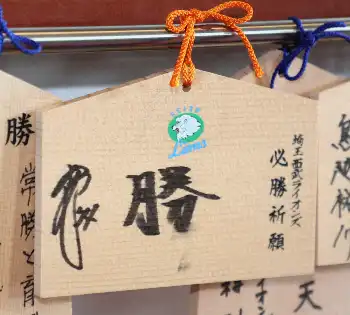 埼玉西武ライオンズ
必勝祈願
勝
SEIBU
Lions
勝
常勝と育
天